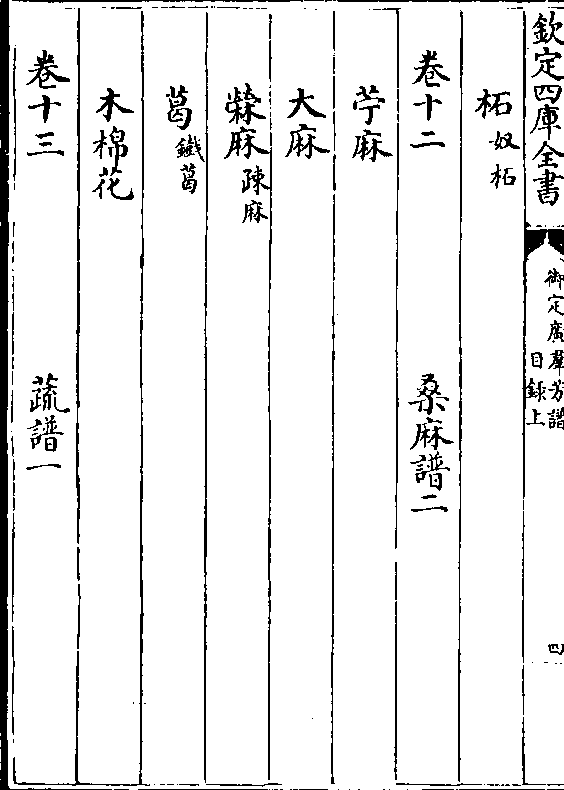 欽定四庫全書
御定廣羣芳譜
目錄上
四
柘奴柘
卷十二 桑麻譜二
苧麻
大麻
檾麻疎麻
葛鐵葛
木棉花
卷十三 蔬譜一